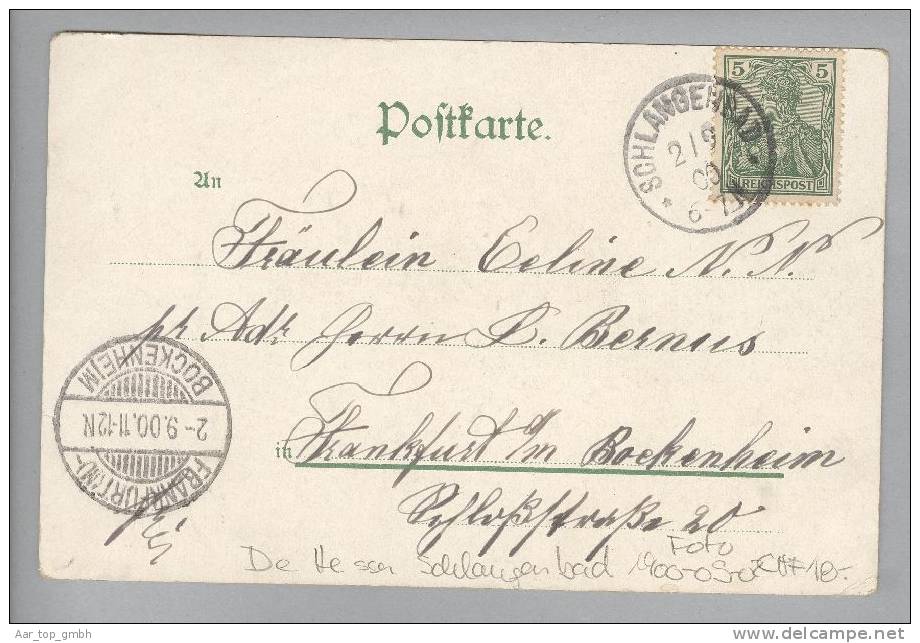 Postkarte.
5 5
REICHSPOST
SCHLANGENBAD
2/9
00
6-7N
An
Fräulein Celine N. N.
pr Adr Herrn L. Bernus
in Frankfurt a/m Bockenheim
Schloßstraße 20
BOCKENHEIM
2-9.00.11-12N
FRANKFURT (M)-
De Hessen Schlangenbad 1900-09-02
Foto
CHF 18.-
Aar_top_gmbh
www.delcampe.net